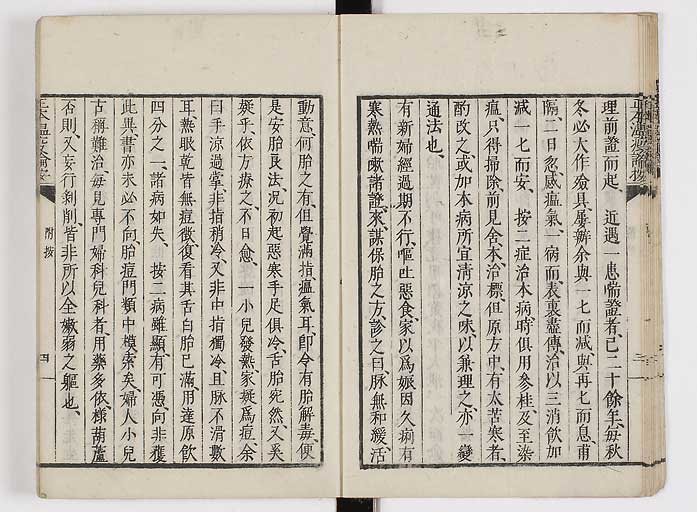 理前證而起、近遇一患喘證者、已二十餘年、每秋
冬必大作、殮具屢辦、余與一七而減、與再七而息、甫
隔二日、忽感瘟氣、一病而表裏盡傳、治以三消飲加
減、一七而安、按二症治本病、時俱用參桂、及至染
瘟、只得掃除前見、舍本治標、但原方中、有太苦寒者、
酌改之、或加本病所宜清涼之味、以兼理之、亦一變
通法也、
有新婦經過期不行、嘔吐惡食、家以爲娠、因久痢有
寒熱喘嗽諸證、來謀保胎之方、診之曰、脉無和緩活
動意、何胎之有、但覺滿指瘟氣耳、卽令有胎、解毒、便
是安胎良法、況初起惡寒、手足俱冷、舌胎宛然、又奚
疑乎、依方療之、不日愈、一小兒發熱、家疑爲痘、余
曰、手涼過掌、非指稍冷、又非中指獨冷、且脉不滑數
耳熱眼乾、皆無痘徵、復看其舌白胎已滿、用達原飮
四分之一、諸病如失、按二病雖顯有可憑、向非獲
此異書、亦未必不向胎痘門類中摸索矣、婦人小兒
古稱難治、每見專門婦科兒科者、用藥多依樣葫蘆
否則又妄行剥削、皆非所以全嫩弱之軀也、
附按
四